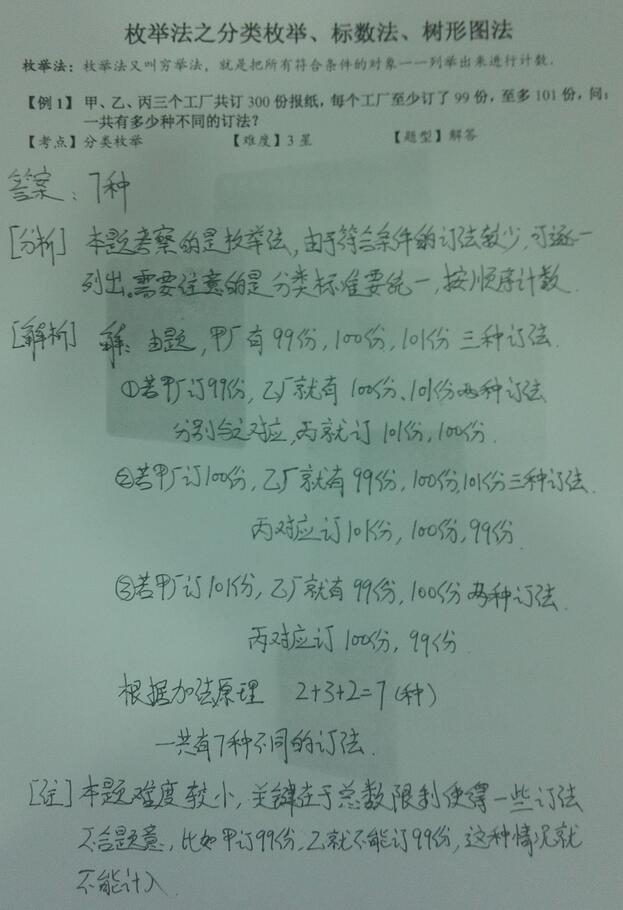 枚举法之分类枚举、标数法、树形图法
枚举法：枚举法又叫穷举法，就是把所有符合条件的对象一一列举出来进行计数.
【例1】 甲、乙、丙三个工厂共订300份报纸，每个工厂至少订了99份，至多101份，问：
一共有多少种不同的订法？
【考点】分类枚举 【难度】3星 【题型】解答
答案：7种
[分析] 本题考察的是枚举法，由于符合条件的订法较少，可逐一
列出。需要注意的是分类标准要统一，按顺序计数.
[解析] 解：由题，甲厂有99份，100份，101份三种订法.
①若甲厂订99份，乙厂就有100份、101份两种订法
分别与之对应，丙就订101份，100份.
②若甲厂订100份，乙厂就有99份，100份，101份三种订法.
丙对应订101份，100份，99份.
③若甲厂订101份，乙厂就有99份，100份两种订法.
丙对应订100份，99份.
根据加法原理 2+3+2=7（种）
一共有7种不同的订法.
[注] 本题难度较小，关键在于总数限制使得一些订法
不合题意，比如甲订99份，乙就不能订99份，这种情况就
不能计入.